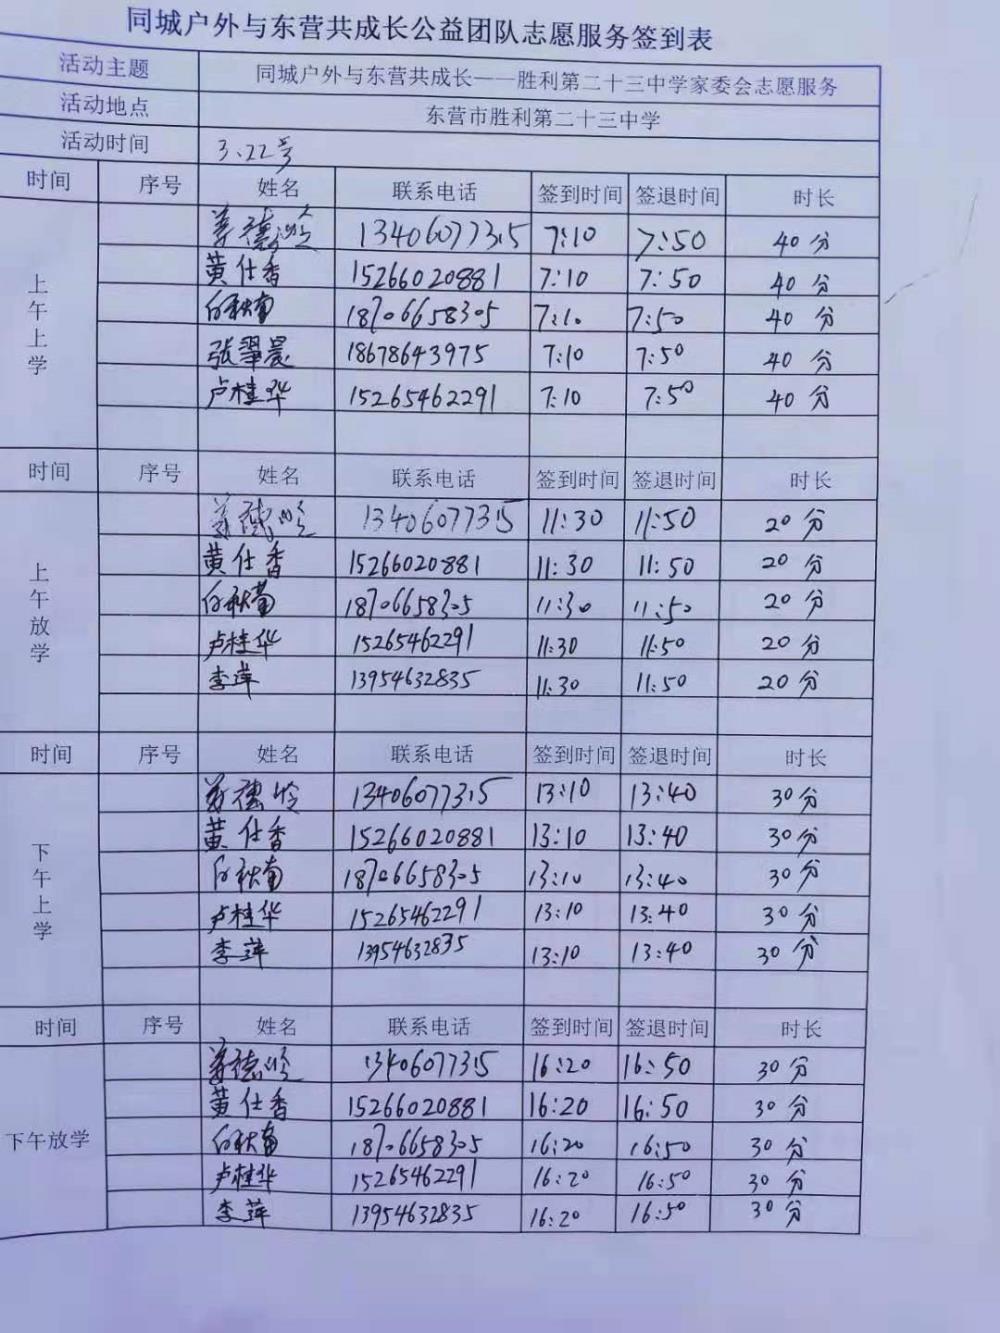 同城户外与东营共成长公益团队志愿服务签到表
活动主题 同城户外与东营共成长——胜利第二十三中学家委会志愿服务
活动地点 东营市胜利第二十三中学
活动时间 3、22号
时间 序号 姓名 联系电话 签到时间 签退时间 时长
上午上学
13406077315 7:10 7:50 40分
黄仕香 15266020881 7:10 7:50 40分
18706658305 7:10 7:50 40分
张翠晨 18678643975 7:10 7:50 40分
卢桂华 15265462291 7:10 7:50 40分
时间 序号 姓名 联系电话 签到时间 签退时间 时长
上午放学
13406077315 11:30 11:50 20分
黄仕香 15266020881 11:30 11:50 20分
18706658305 11:30 11:50 20分
卢桂华 15265462291 11:30 11:50 20分
李萍 13954632835 11:30 11:50 20分
时间 序号 姓名 联系电话 签到时间 签退时间 时长
下午上学
13406077315 13:10 13:40 30分
黄仕香 15266020881 13:10 13:40 30分
18706658305 13:10 13:40 30分
卢桂华 15265462291 13:10 13:40 30分
李萍 13954632835 13:10 13:40 30分
时间 序号 姓名 联系电话 签到时间 签退时间 时长
下午放学
13406077315 16:20 16:50 30分
黄仕香 15266020881 16:20 16:50 30分
18706658305 16:20 16:50 30分
卢桂华 15265462291 16:20 16:50 30分
李萍 13954632835 16:20 16:50 30分